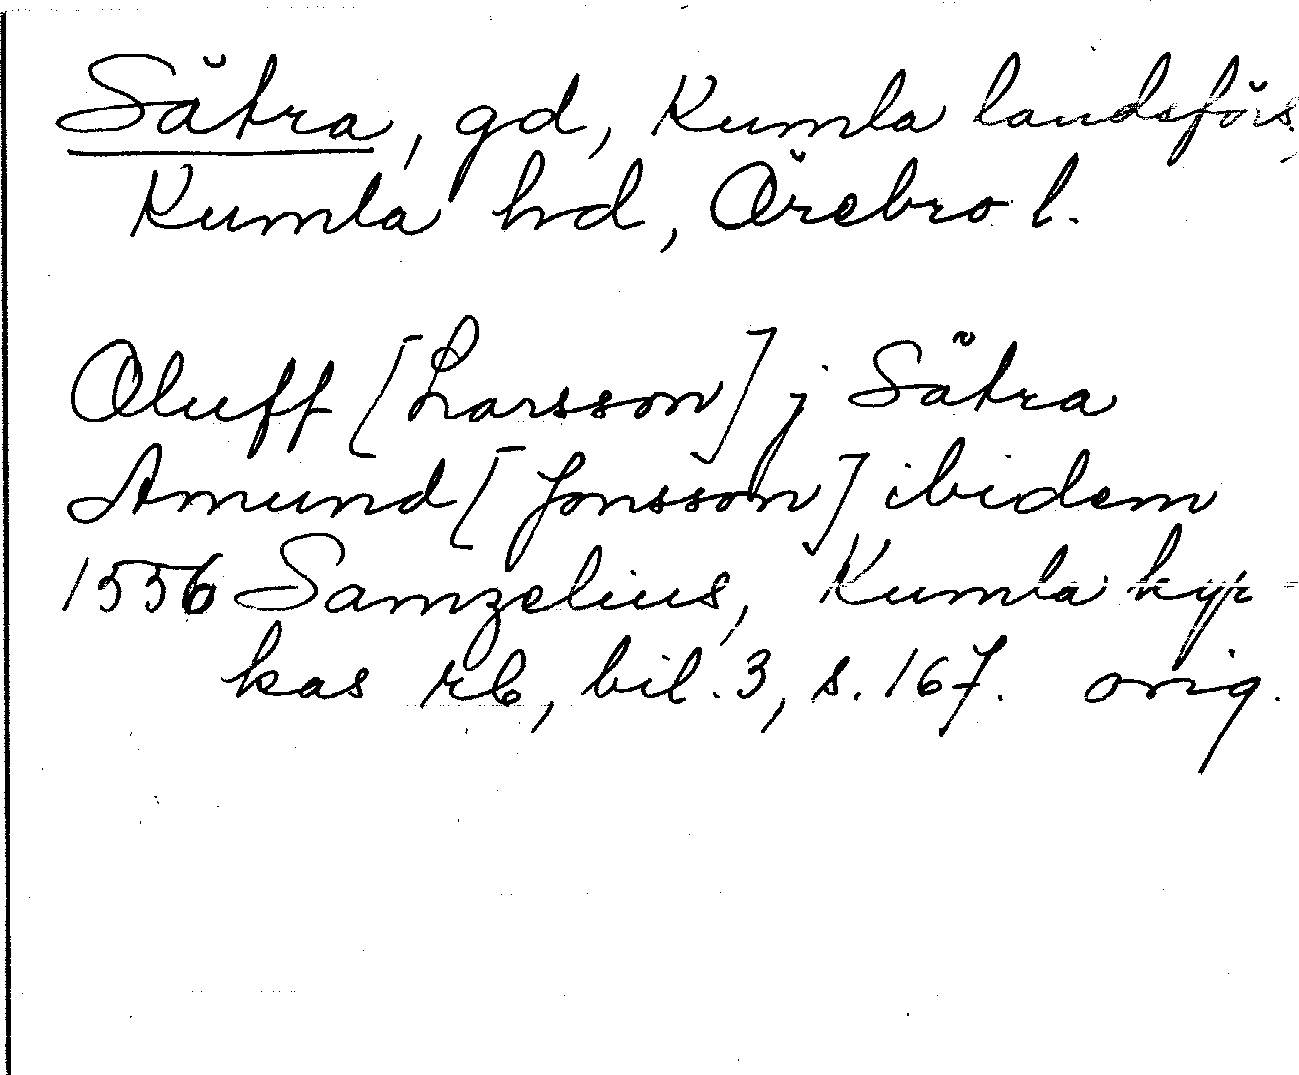 Sätra, gd, Kumla landsförs.,
Kumla hd, Örebro l.
Oluff [Larsson] j Sätra
Amund [Jonsson] ibidem
1556 Samzelius, Kumla kyr-
kas rb, bil. 3, s. 167. orig.